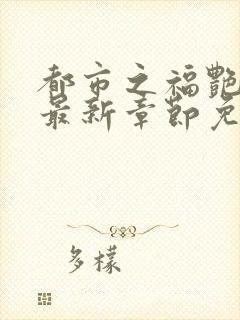 都市之福艷
最新章節免
多樣